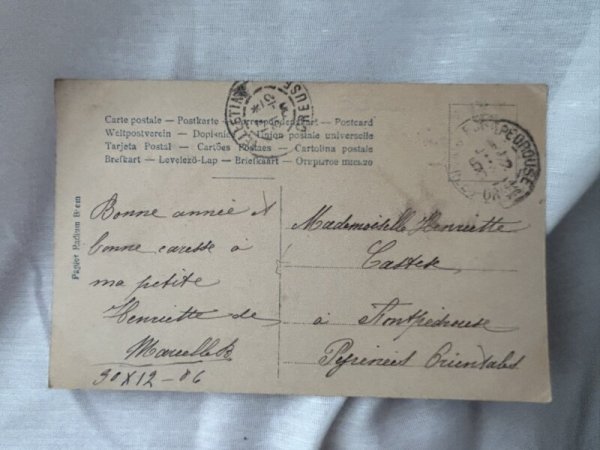 Carte postale — Postkarte — Correspondenzkart — Postcard
Weltpostverein — Dopisnice — Union postale universelle
Tarjeta Postal — Cartões Postaes — Cartolina postale
Brefkort — Levelező-Lap — Briefkaart — Открытое письмо
CREUSE
Papier Radium Brom
Bonne année et
bonne caresse à
ma petite
Henriette de
Marcelle B
30 X 12 - 06
Mademoiselle Henriette
à Fontpédrouse
Pyrénées Orientales